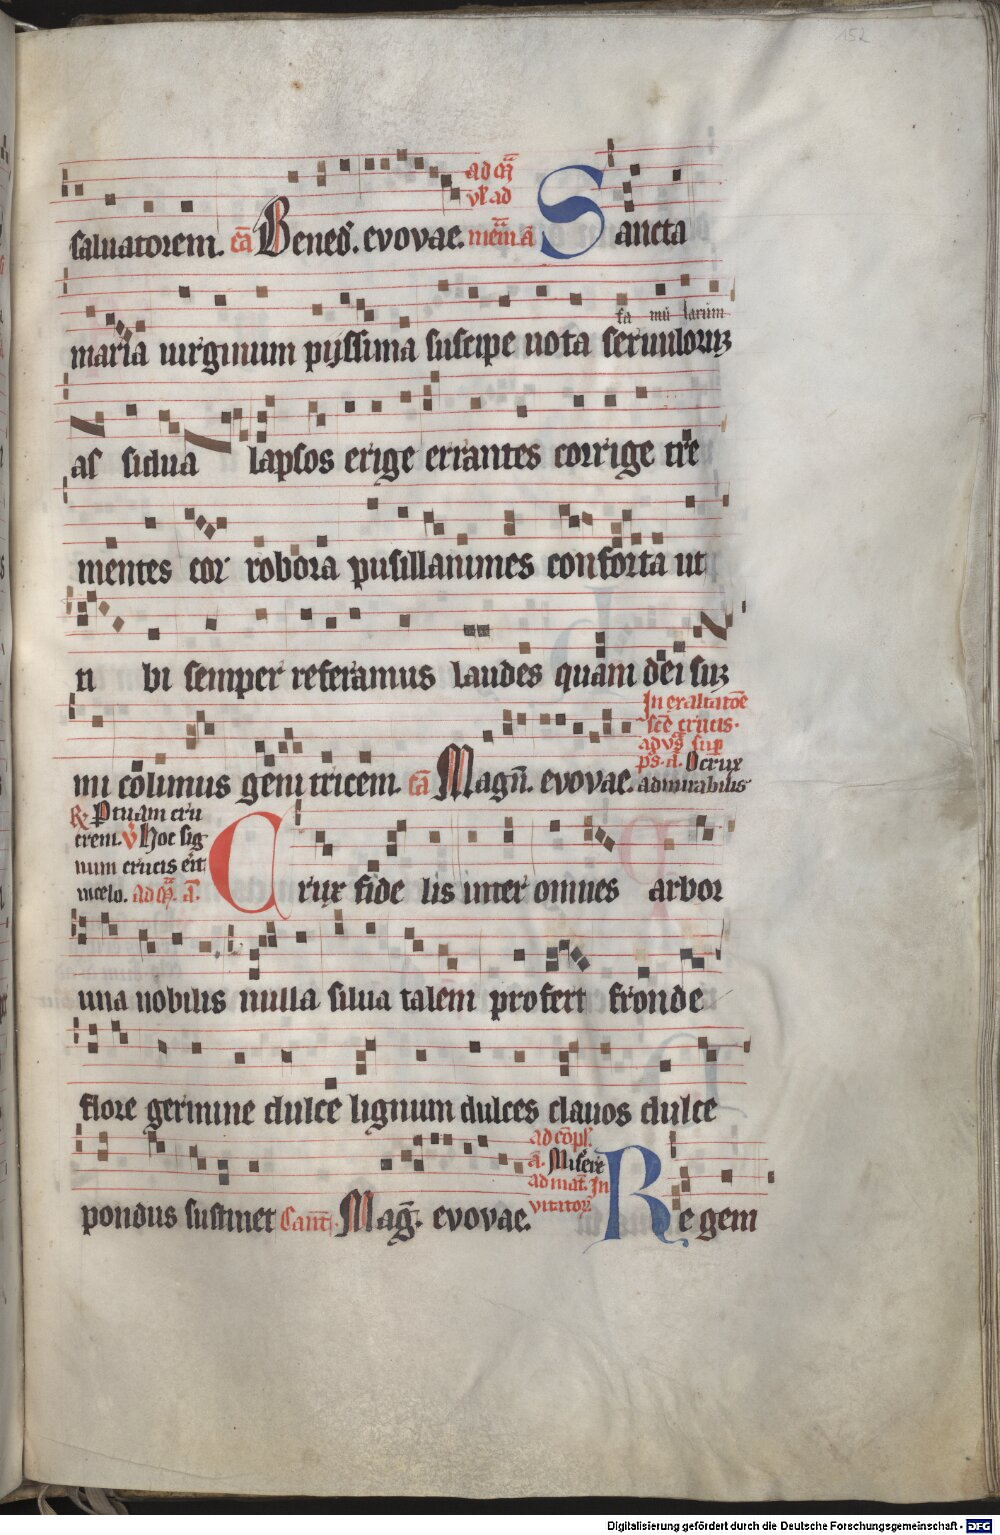 152
saluatorem. cā Bened. evovae. ad m̄
vl ad
mem̄ ā Sancta
fa mu larum
maria uirginum pijssima suscipe uota seruulorum
as sidua lapsos erige errantes corrige tre
mentes cor robora pusillanimes conforta ut
ti bi semper referamus laudes quam dei sum
mi colimus geni tricem. cā Magn̄. evovae.
In exaltatōe
scē crucis.
ad vs̄ sup
ps. ā. O crux
admirabilis
R Per tuam cru
cem. v̄ Hoc sig
num crucis erit
in celo. ad m̄. ā.
Crux fide lis inter omnes arbor
una nobilis nulla silua talem profert fronde
flore germine dulce lignum dulces clauos dulce
pondus sustinet Cant. Maḡ. evovae.
ad cōpl.
ā. Misere
ad mat. In
vitator
Regem
Digitalisierung gefördert durch die Deutsche Forschungsgemeinschaft - DFG